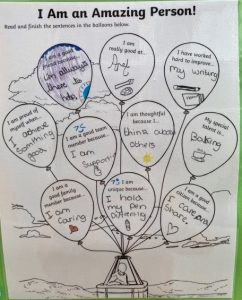 I Am an Amazing Person!
Read and finish the sentences in the balloons below.
I am a good
friend because...
I am always
there to
help
I am
really good at...
Art
I have worked
hard to improve...
My writing
I am proud of
myself when...
I achieve
something
good
I am a good team
member because...
I am
support
I am thoughtful
because I...
think about
others
My special
talent is...
Baking
I am a
good family
member because...
I am
caring
I am
unique because...
I hold
my pen
differently
I am a good
citizen because...
I care and
share